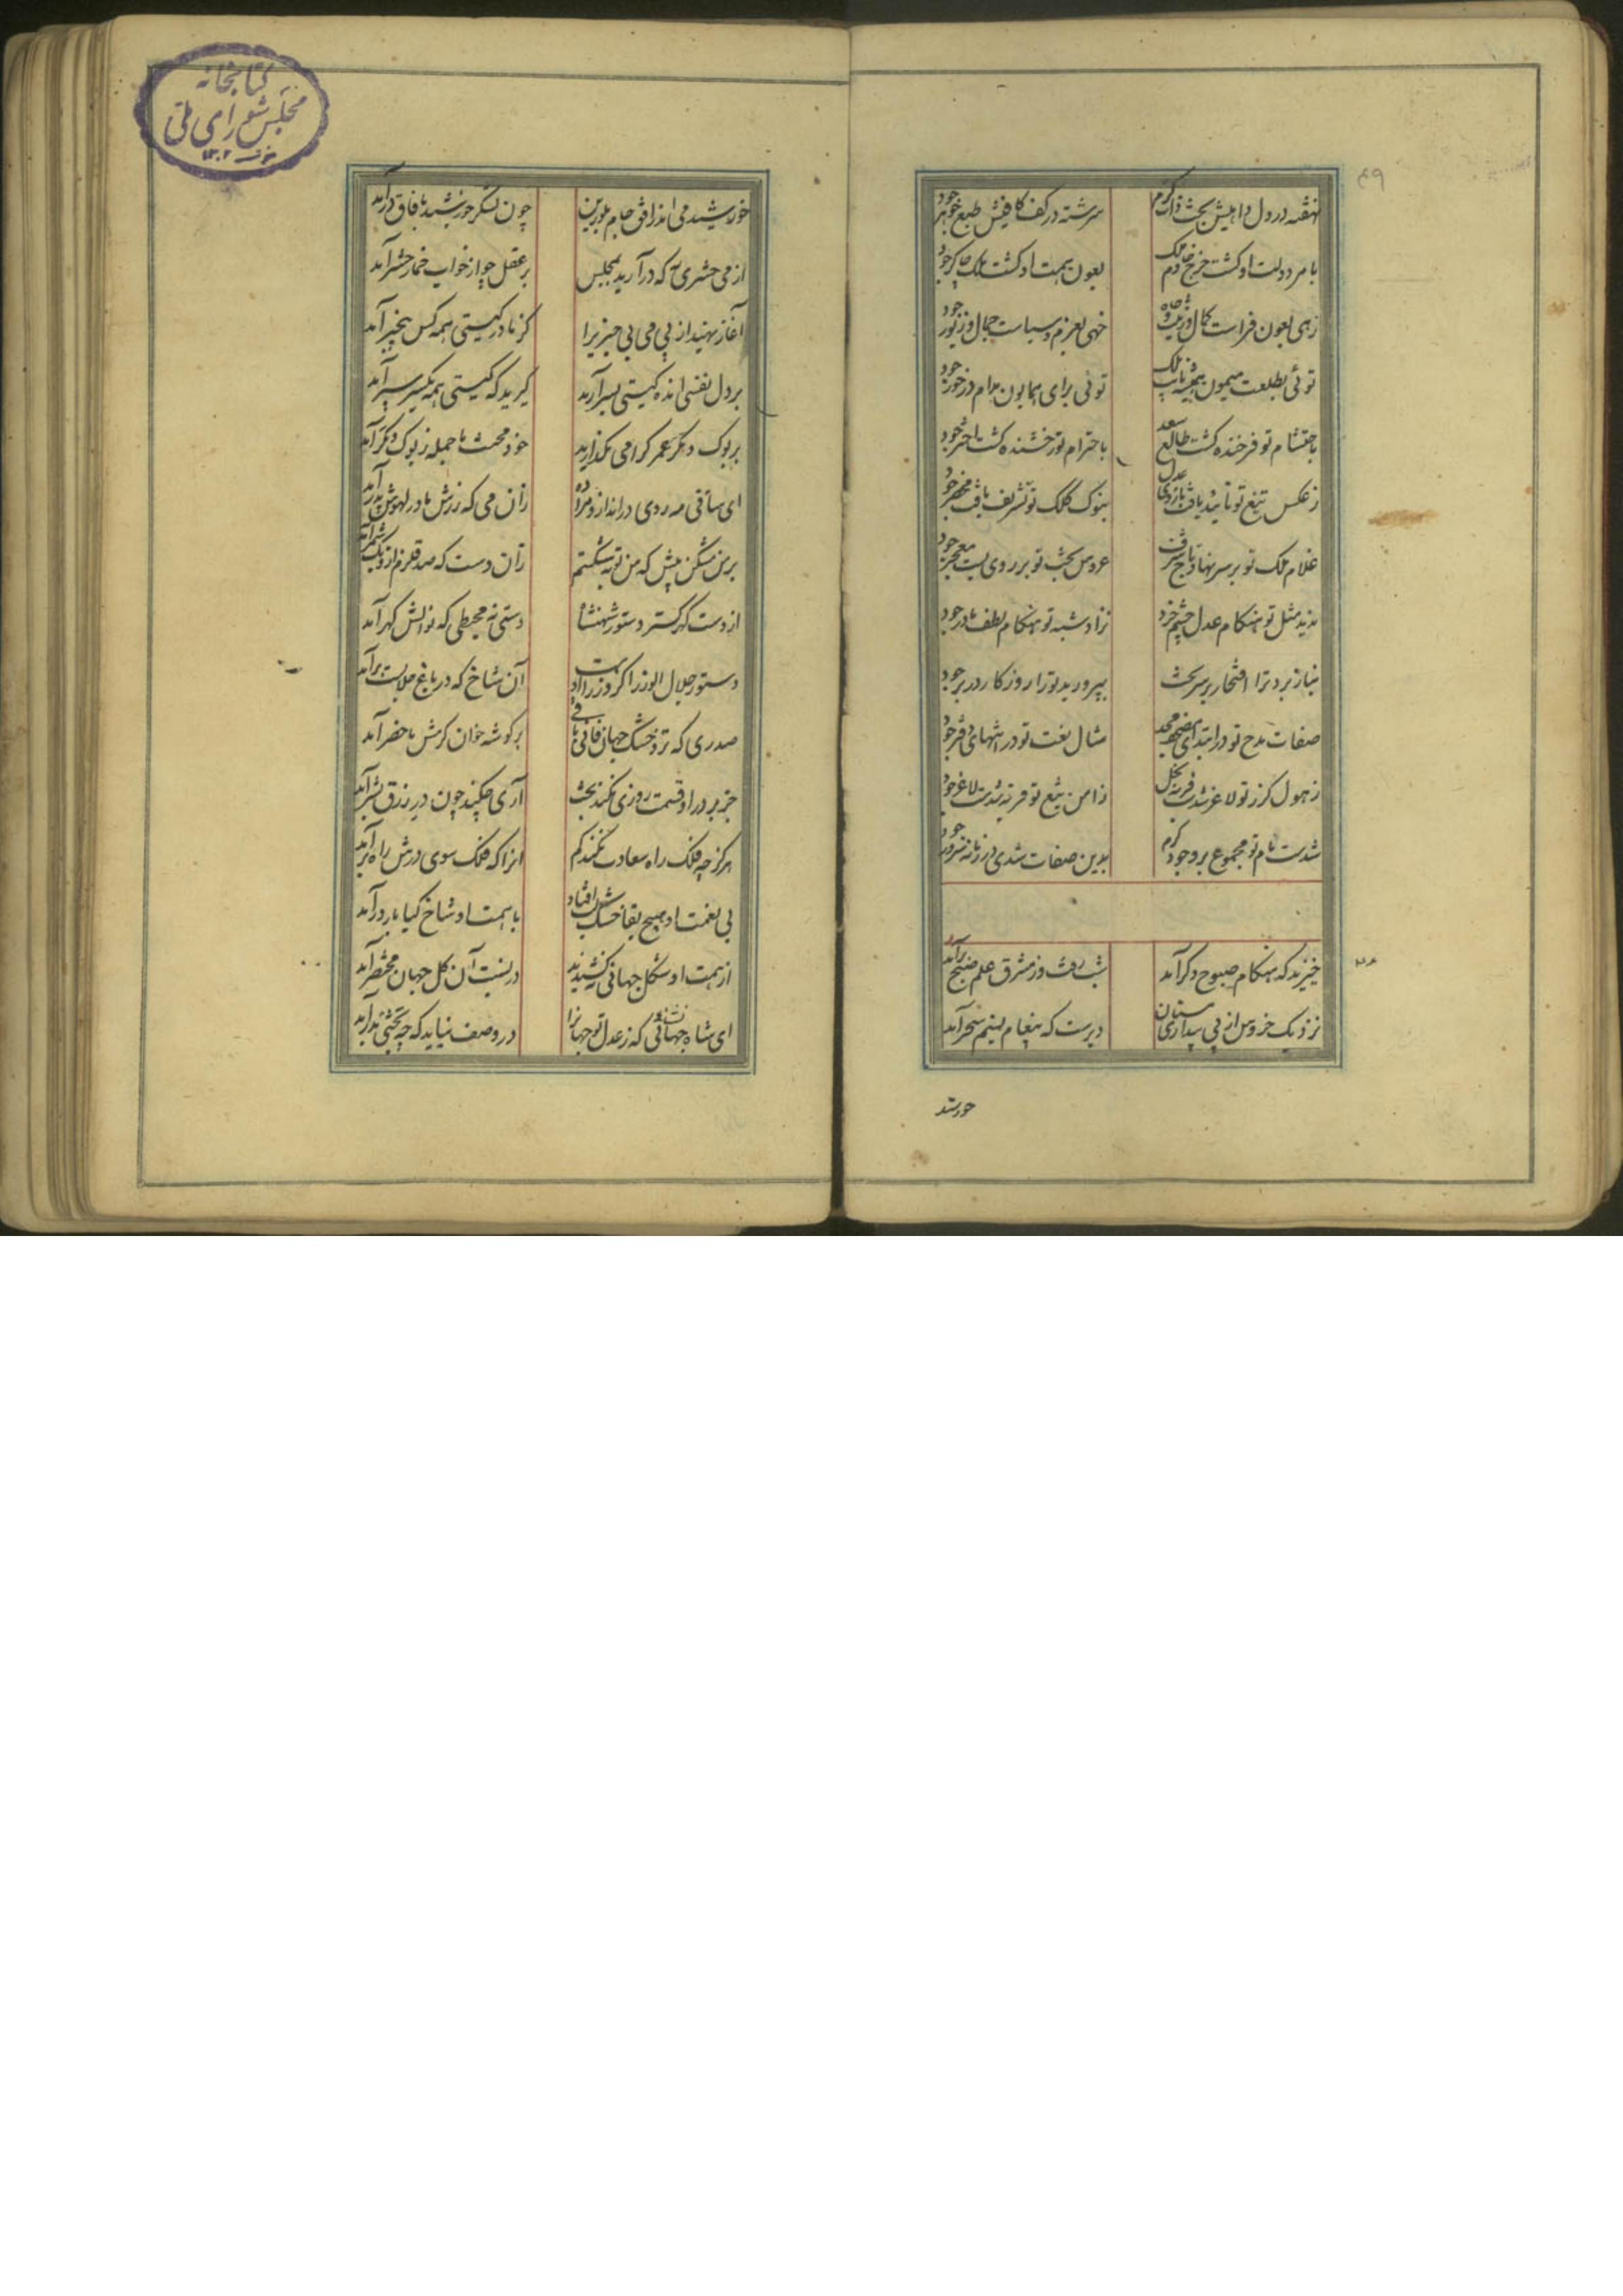 ۴۹
نهفته در دل داهیش بخت ذات کرم سرشته در کف کافیش طبع جوهر جود
بامر دولت او گشت چرخ خادم ملک بعون همت او گشت ملک چاکر جود
زهی بعون فراست کمال و زینت جاه خهی بعزم و سیاست جمال و زیور جود
توئی بطلعت میمون همیشه نایب ملک توئی برای همایون مدام در خور جود
باحتشام تو فرخنده گشت طالع سعد باحترام تو رخشنده گشت اختر جود
ز عکس تیغ تو تأیید یافت بازوی عدل بنوک کلک تو تشریف یافت محضر جود
غلام ملک تو بر سر نهاد تاج شرف عروس بخت تو بر روی بست معجر جود
ندید مثل تو هنگام عدل چشم خرد نزاد شبه تو هنگام لطف مادر جود
نیاز برد ترا افتخار بر سر بخت بپرورید ترا روزگار در بر جود
صفات مدح تو در ابتدای مصحف مجد مثال نعت تو در انتهای دفتر جود
ز هول گرز تو لاغر شدست فربه بخل ز امن تیغ تو فربه شدست لاغر جود
شدست نام تو مجموع بر وجود کرم بدین صفات شدی در زمانه سرور جود
خیزید که هنگام صبوح دگر آمد شب رفت و ز مشرق علم صبح برآمد
نزدیک خروس از پی بیداری مستان دیرست که پیغام نسیم سحر آمد
خورشد
کتابخانه
مجلس شورای ملی
۱۳۰۲
خورشید می اندر افق جام بلورین چون لشکر خورشید بآفاق درآمد
از می حشری به که درآرید بمجلس بر عقل چو از خواب خمار حشر آمد
آغاز نهید از پی می بی خبری را کز نادر گیتی همه کس بیخبر آمد
بر دل نفسی انده گیتی بسر آرید گیرید که گیتی همه یکسر بسر آمد
بر بوک و مگر عمر گرامی مگذارید خود محنت ما جمله ز بوک و مگر آمد
ای ساقی مه روی درانداز و مرا ده زان می که رزش مادر لهوش پدر آمد
بر من مشکن بیش که من توبه شکستم زان دست که صد قلزم ازو یک شمر آمد
از دست گهر گستر دستور شهنشاه دستی نه محیطی که نوالش گهر آمد
دستور جلال الوزرا کز وزرا اوست آن شاخ که در باغ جلالت ببر آمد
صدری که تر و خشک جهان فانی باقی بر گوشه خوان کرمش ماحضر آمد
جز بر در او قسمت روزی نکند بخت آری چکند چون در رزق بشر آمد
هرگز چه فلک راه سعادت نکند گم انرا که فلک سوی درش راه بر آمد
بی نعمت او هیچ بقا خشک لب افتادش با همت او شاخ گیا بارور آمد
از همت او شکل جهانی بکشیدند در نسبت آن کل جهان مختصر آمد
ای شاه نشانی که ز عدل تو جهانرا در وصف نیاید که چه بختی بدر آمد